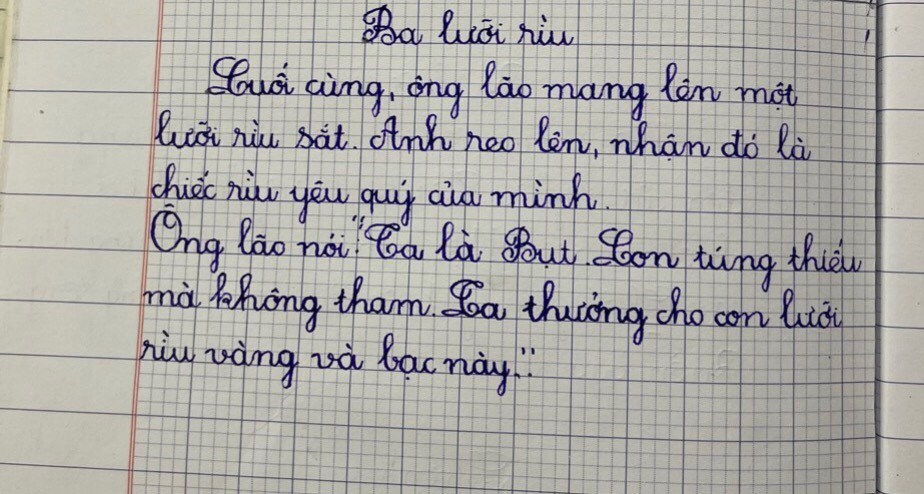 Ba lưỡi rìu
Cuối cùng, ông lão mang lên một
lưỡi rìu sắt. Anh reo lên, nhận đó là
chiếc rìu yêu quý của mình.
Ông lão nói: "Ta là Bụt. Con túng thiếu
mà không tham. Ta thưởng cho con lưỡi
rìu vàng và bạc này."